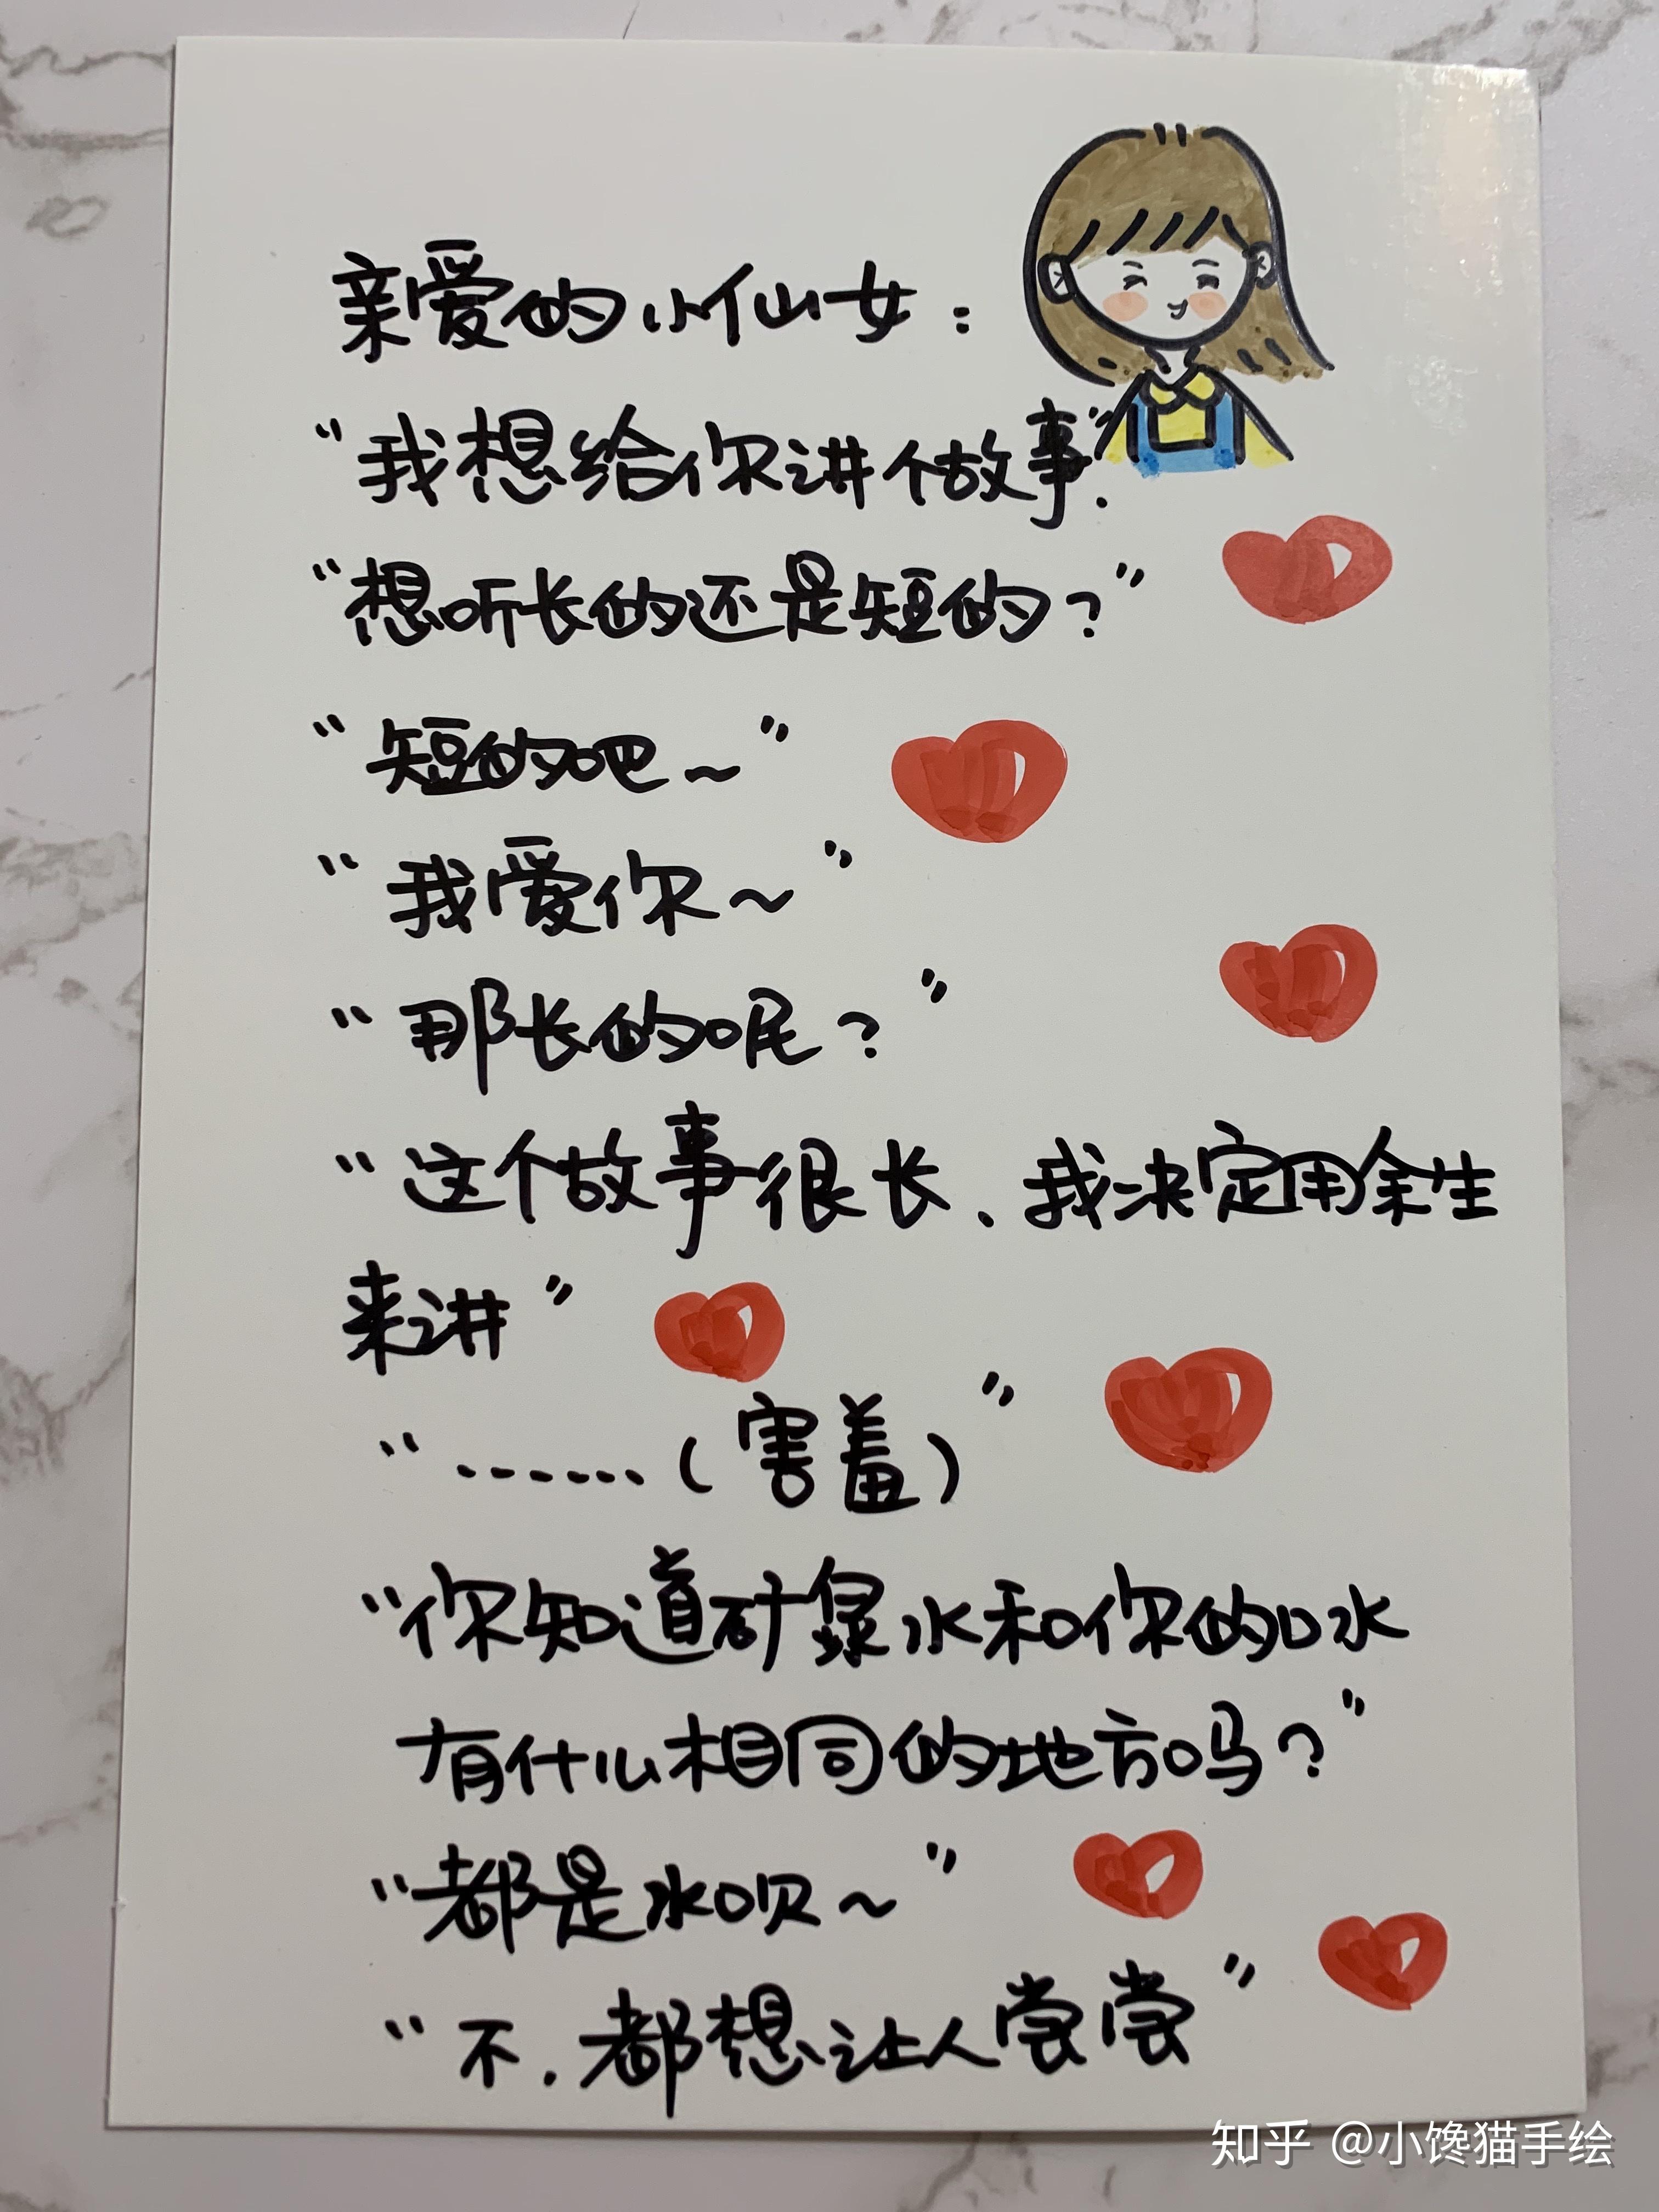 亲爱的小仙女：
“我想给你讲个故事”.
“想听长的还是短的？”
“短的吧～”
“我爱你～”
“那长的呢？”
“这个故事很长、我决定用余生
来讲”
“......（害羞）”
“你知道矿泉水和你的口水
有什么相同的地方吗？”
“都是水呗～”
“不.都想让人尝尝”
知乎 @小馋猫手绘